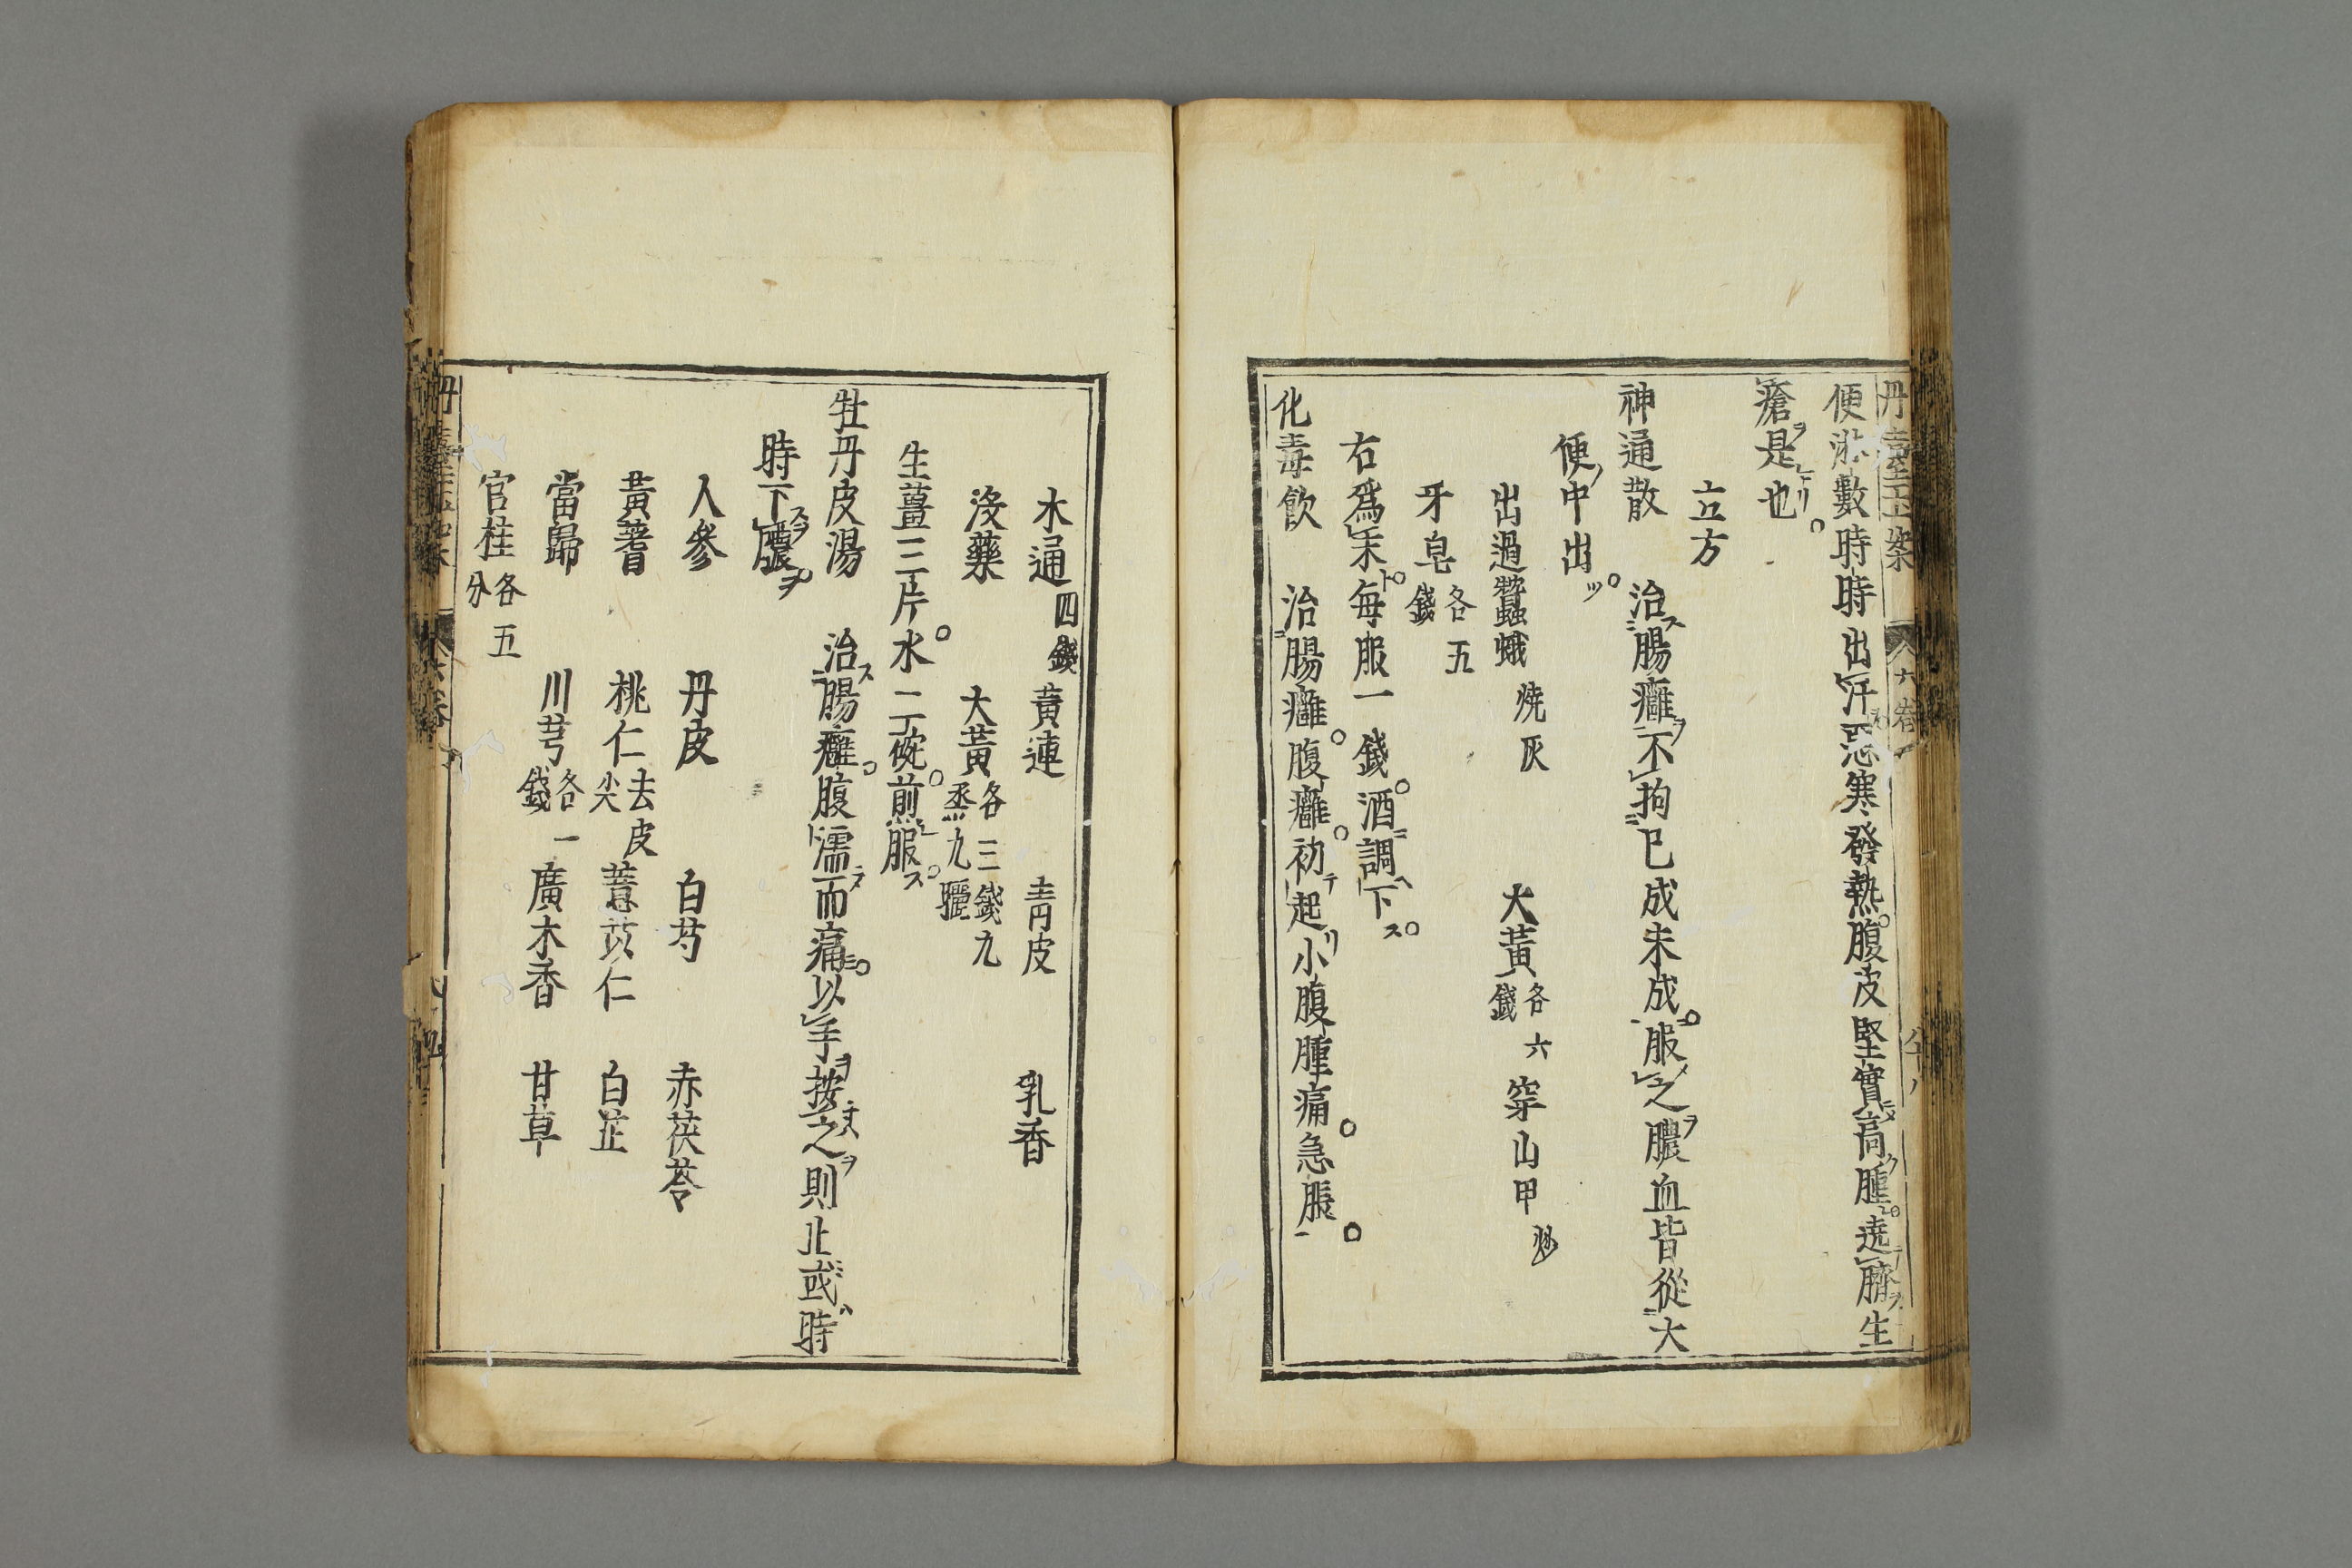 便淋數時時出汗惡寒發熱腹皮堅實高腫遶臍生
瘡是也
立方
神通散 治腸癰不拘已成未成服之膿血皆從大
便中出
出過蠶蛾 燒灰 大黃 各六錢 穿山甲 炒
牙皂 各五錢
右爲末每服一錢酒調下
化毒飲 治腸癰腹癰初起小腹腫痛急脹
木通 四錢 黃連 靑皮 乳香
沒藥 大黃 各三錢九烝九曬
生薑三片水二碗煎服
牡丹皮湯 治腸癰腹濡而痛以手按之則止或時
時下膿
人參 丹皮 白芍 赤茯苓
黃蓍 桃仁 去皮尖 薏苡仁 白芷
當歸 川芎 各一錢 廣木香 甘草
官桂 各五分